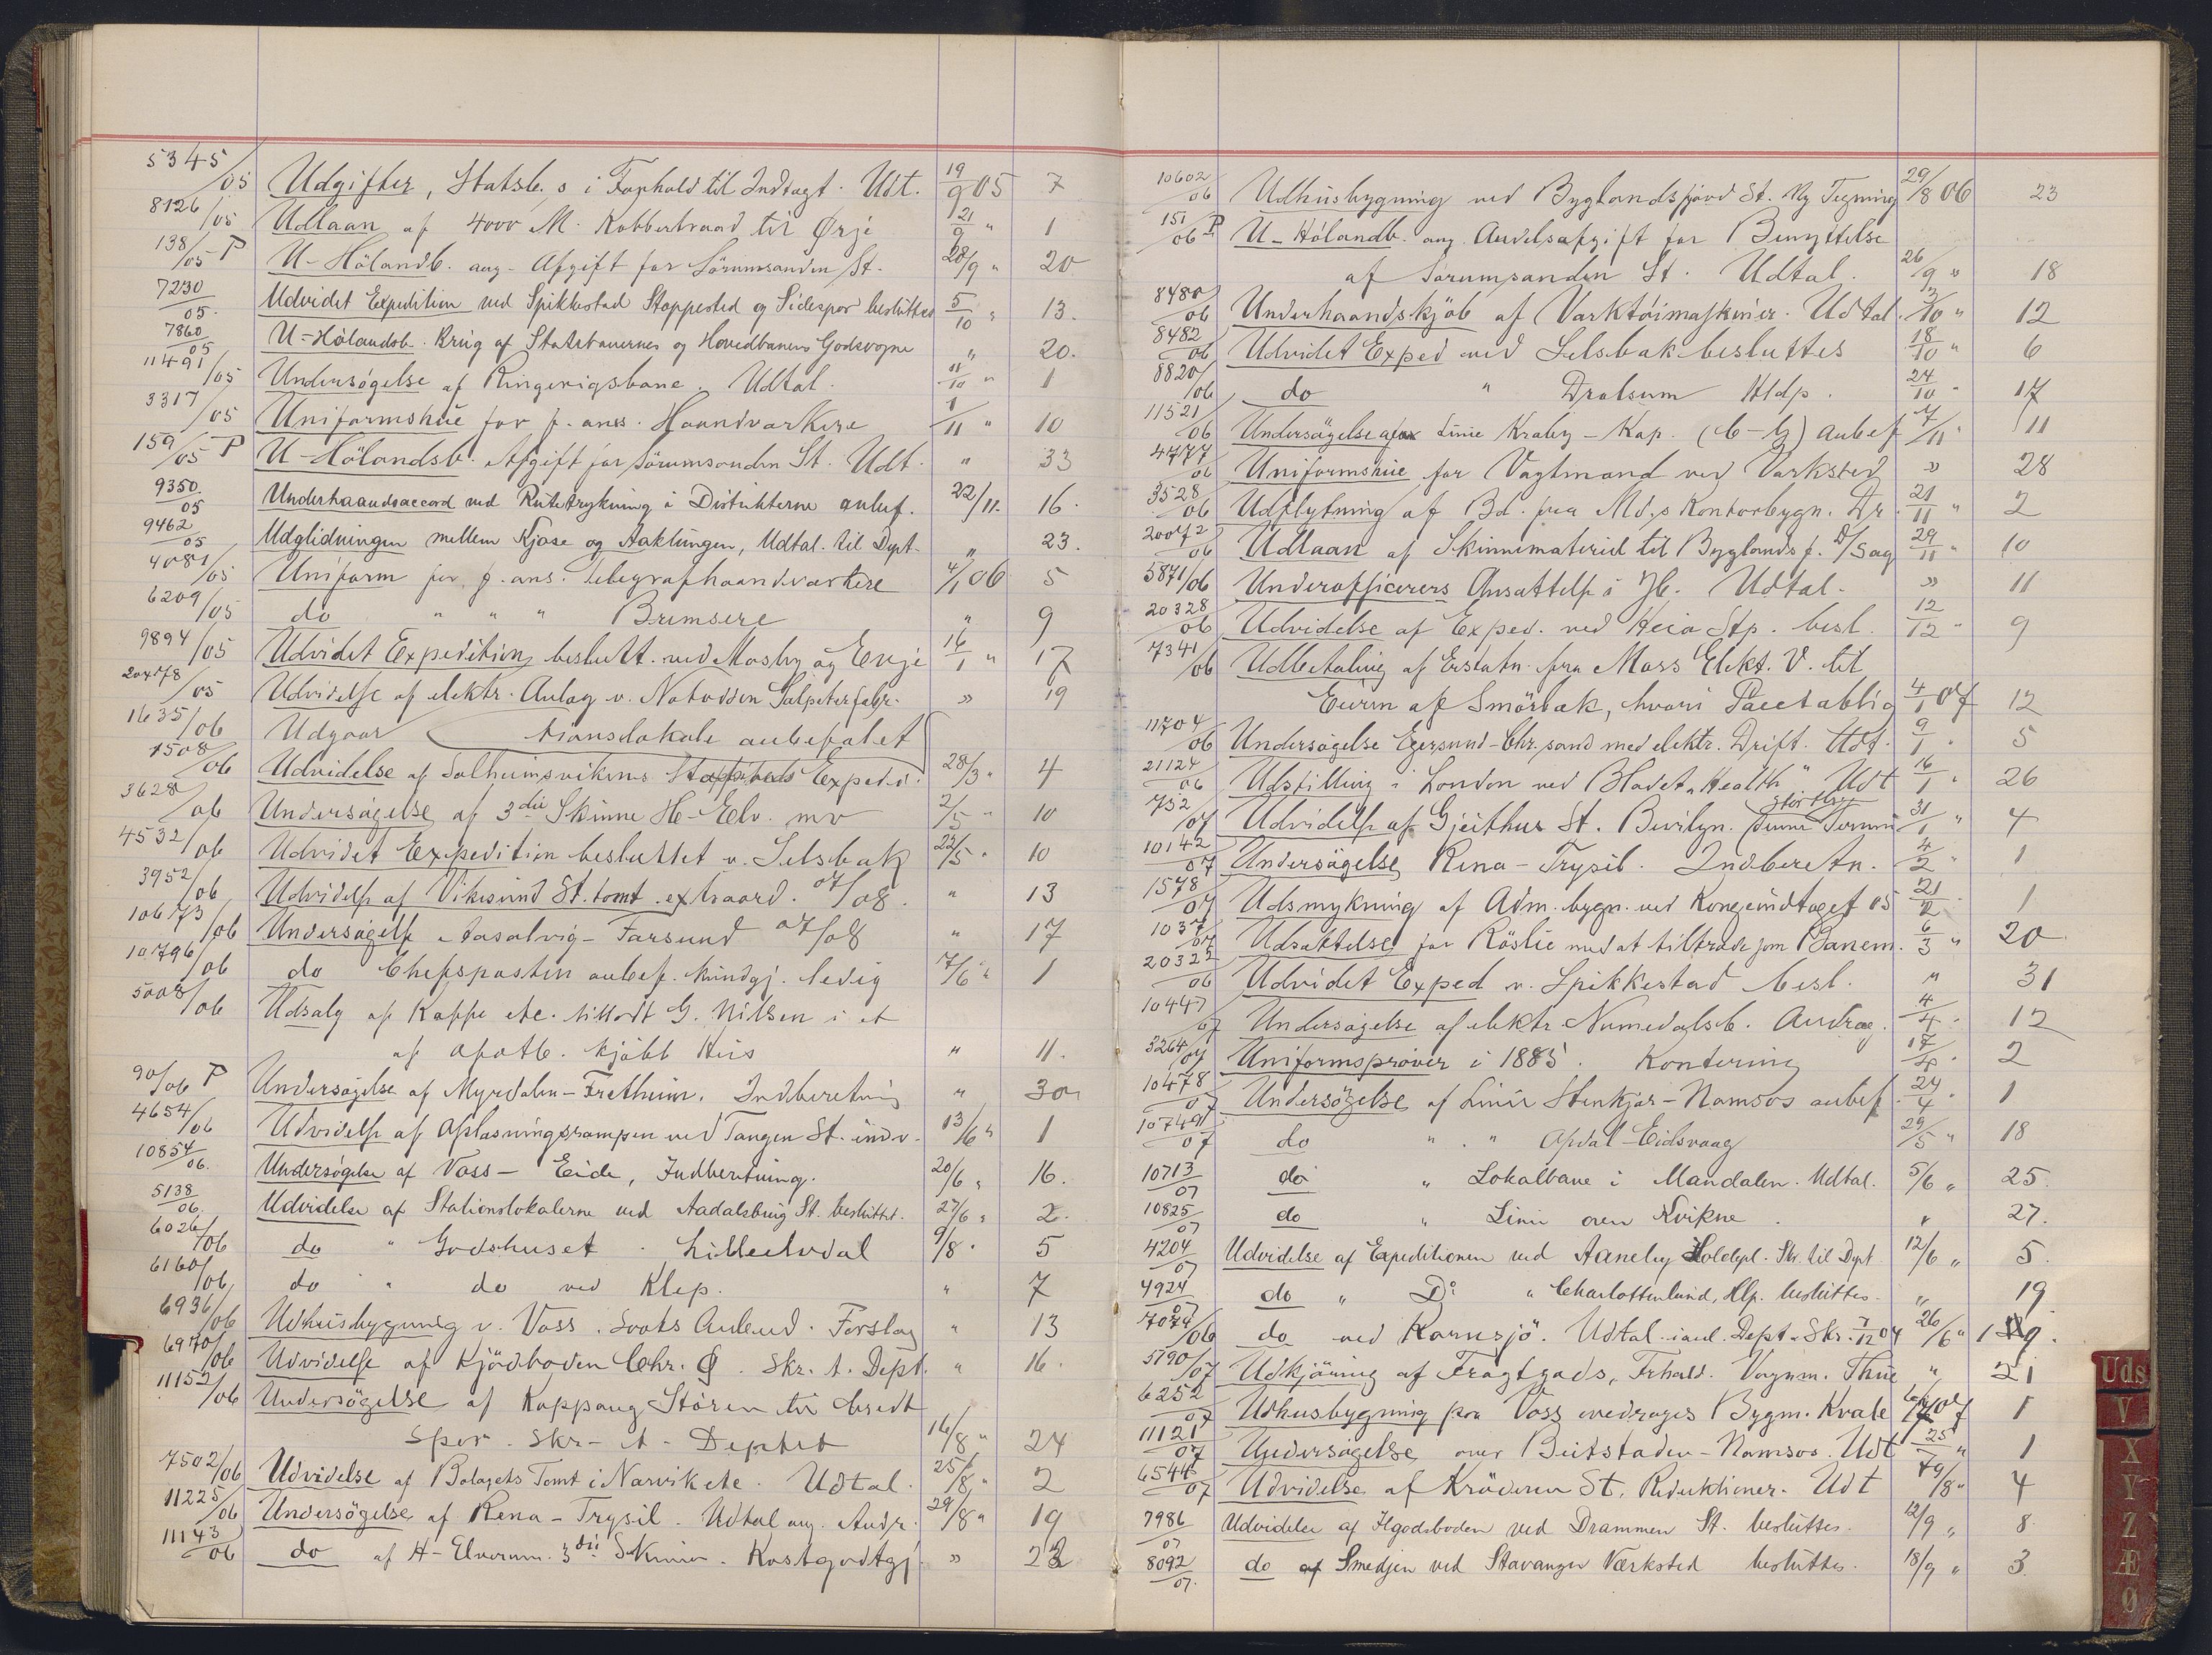 5345/05 Udgifter, Statsb.s i Forhold til Indtægt. Udt. 19/9 05 7
8126/05 Udlaan af 4000 M. Kobbertraad til Ørje 21/9 " 1
138/05 P U-Hölandb. ang. Afgift for Sörumsanden St. 28/9 " 20
7230/05. Udvidet Expedition ved Spikkestad Stoppested og Sidespor besluttes 5/10 " 13.
7860/05 U-Hölandsb. Brug af Statsbanernes og Hovedbanens Godsvogne " 20.
11491/05 Undersögelse af Ringerigsbane. Udtal. 11/10 " 1
3317/05 Uniformshue for f. ans. Haandværkere 1/11 " 10
159/05 P U-Hölandsb. Afgift for Sörumsanden St. Udt. " 33
9350/05 Underhaandsaccord ved Rutetrykning i Distrikterne anbef. 22/11. 16.
9462/05 Udglidningen mellem Kjose og Aaklungen, Udtal. til Dept. " 23.
4081/05 Uniform for f. ans. Telegrafhaandværkere 4/1 06 5
6209/05 do " " " Bremsere " 9
9894/05 Udvidet Expedition beslutt. ved Mosby og Evje 16/1 " 17
20478/05 Udvidelse af elektr. Anlæg v. Notodden Salpeterfabr. » 19
1635/06 Udgaar anbefalet
1508/06 Udvidelse af Solheimsvikens Stoppesteds Exped. 28/3 " 4
3628/06 Undersögelse af 3die Skinne H-Elv. mv 2/5 " 10
4532/06 Udvidet Expedition besluttet v. Selsbak 22/5 " 10
3952/06 Udvidelse af Vikesund St. tomt extraord. 07/08. " 13
10673/06 Undersögelse Aasalvig-Farsund 07/08 " 17
10796/06 do Chefsposten anbef. kundgj. ledig 7/6 " 1
5008/06 Udsalg af Kaffe etc. tilladt G. Nilsen i et
af Apoth. kjöbt Hus " 11.
90/06 P Undersögelse af Myrdalen-Fretheim. Indberetning " 30
4654/06 Udvidelse af Aflæsningsrampen ved Tangen St. indv. 13/6 " 1
10854/06. Undersögelse af Voss - Eide, Indberetning. 20/6 " 16.
5138/06. Udvidelse af Stationslokalerne ved Aadalsbrug St. besluttet. 27/6 " 2.
6026/06 do " Godshuset " Lilleelvdal 9/8 " 5
6160/06 do " do ved Klep. " 7
6936/06 Udhusbygning v. Voss. Anbud. Forslag " 13
6970/06 Udvidelse af Kjödboden Chr. Ø. Skr. t. Dept. " 16.
11152/06 Undersögelse af Koppang Stören til bredt
Spor. Skr- t- Deptet 16/8 " 24
7502/06 Udvidelse af Bolagets Tomt i Narvik etc. Udtal. 25/8 " 2
11225/06 Undersögelse af Rena-Trysil. Udtal ang. Andr. 29/8 " 19
11143/06 do af H-Elverum. 3die Skinne. Kostgodtgj. » 22
10602/06 Udhusbygning ved Byglandsfjord St. Ny Tegning 29/8 06 23
151/06 P U-Hölandb. ang. Andelsafgift for Benyttelse
af Sörumsanden St. Udtal. 26/9 " 18
8480/06 Underhaandskjöb af Værktöimaskiner. Udtal. 3/10 " 12
8482/06 Udvidet Exped ved Selsbak besluttes 18/10 " 6
8820/06 do " Drolsum Hldp. 24/10 " 17
11521/06 Undersögelse af Linie Kraby-Kap. (C-G) anbef 7/11 " 11
4777/06 Uniformshue for Vagtmand ved Værksted » 28
3528/06 Udflytning af Bd. fra Md.s Kontorbygn. Dr. 21/11 " 2
20072/06 Udlaan af Skinnemateriel til Byglandsf. D/Sag 29/11 " 10
5871/06 Underofficerers Ansættelse i Jb. Udtal. » 11
20328/06 Udvidelse af Exped. ved Heia Stp. besl. 12/12 " 9
7341/06 Udbetaling af Erstatn. fra Moss Elekt. V. til
Eieren af Smörbæk, 4/1 07 12
11704/06 Undersögelse Egersund-Chr.sand med elektr. Drift. Udt. 9/1 " 5
21124/06 Udstilling i London ved Bladet "Health" Udt 16/1 " 26
732/07 Udvidelse af Gjeithus St. Bevilgn. större Termin 31/1 " 4
10142/07 Undersögelse Rena-Trysil. Indberetn. 4/2 " 1
1578/07 Udsmykning af Adm. bygn. ved Kongeindtoget 05 21/2 " 1
1037/07 Udsættelse for Röslie med at tiltræde som Banem. 6/3 " 20
20322/06 Udvidet Exped v. Spikkestad besl. " 31
10447/07 Undersögelse af elektr. Numedalsb. Andrag. 4/4 " 12
3264/07 Uniformspröver i 1885. Kontering 17/4 " 2
10478/07 Undersögelse af Linie Stenkjær-Namsos anbef. 24/4 " 1
10749/07 do " " Opdal-Eidsvaag 29/5 " 18
10713/07 do " Lokalbane i Mandalen. Udtal. 5/6 " 25.
10825/07 do " Linie over Kvikne. " 27.
4204/07 Udvidelse af Expeditionen ved Aaneby Holdepl. Skr. til Dept 12/6 " 5.
4924/07 do " Do " Charlottenlund, Hlp. besluttes. " 19
7079/06 do ved Kornsjö. Udtal. i anl. Dept.s Skr. 7/12 04 26/6 " 19.
5190/07 Udkjöring af Fragtgods, Frhald. Vognm. Thue " 21
6252/07 Udhusbygning fra Voss overdrages Bygm. Kvale 07 1
11121/07 Undersögelse over Beitstaden-Namsos. Udt 25/7 " 1
6544/07 Udvidelse af Kröderen St. Reduktioner. Udt 19/8 " 4
7986/07 Udvidelse af Ilgodsboden ved Drammen St. besluttes. 12/9 " 8
8092/07. do af Smedjen ved Stavanger Værksted besluttes. 18/9 " 3.
Uds
V
X
Y
Z
Æ
Ø